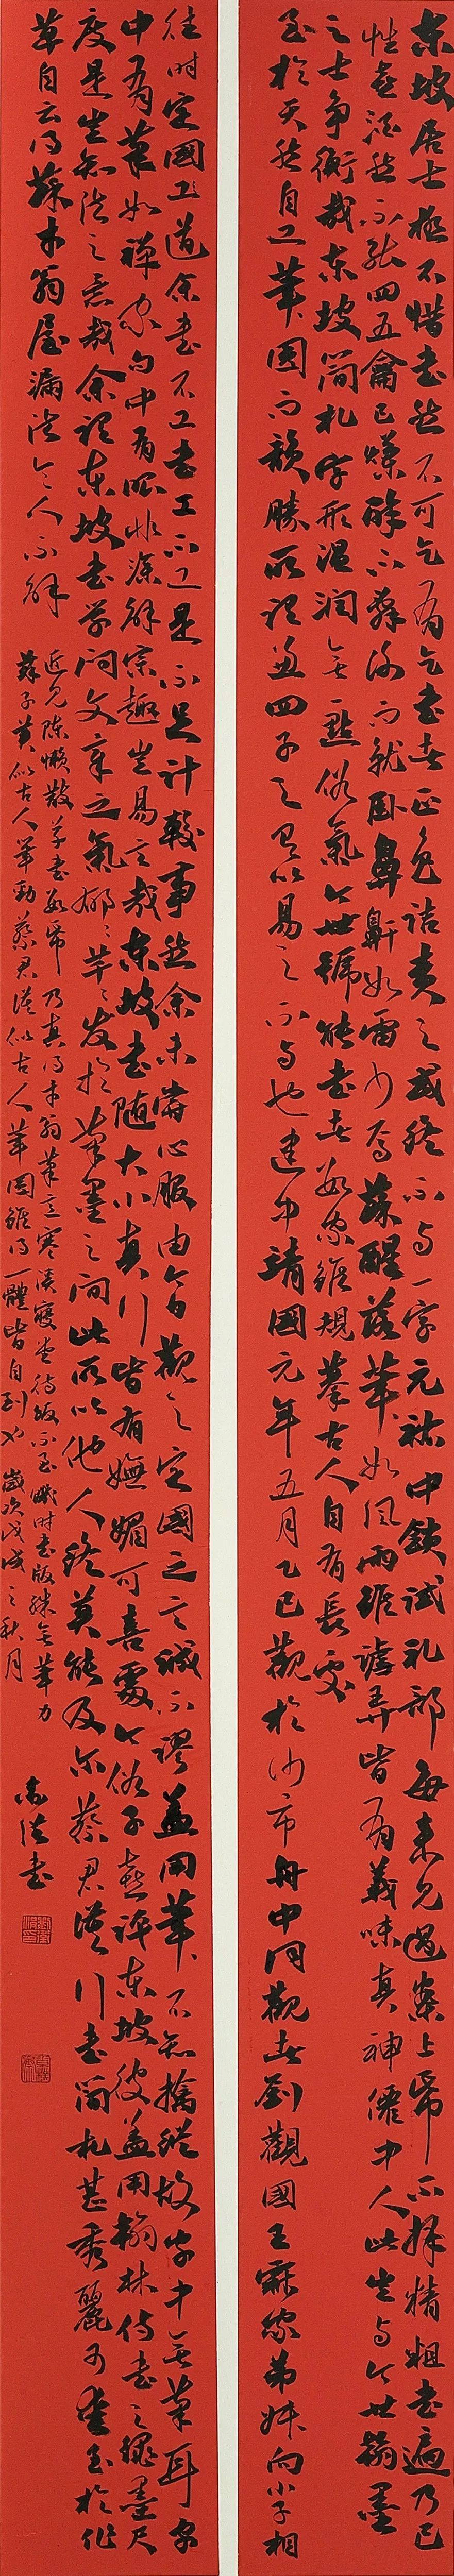 东坡居士极不惜书然不可乞有乞书者正色诘责之或终不与一字元祐中鎖试礼部每来见过案上纸不择精粗书遍乃已
性喜酒然不能四五龠已爛醉不辞谢而就卧鼻鼾如雷少焉蘇醒落笔如风雨雖謔弄皆有義味真神僊中人此岂与今世翰墨
之士争衡哉东坡简札字形温润无一點俗氣今世號能书者数家雖規摹古人自有長处
至於天然自工筆圆而韻勝所谓兼四子之有以易之不与也建中靖國元年五月乙巳觀於沙市舟中同觀者劉觀國王霖家弟妹向小子相
往时定國道余书不工书工不工是不足计较事然余未嘗心服由今日觀之定國之言诚不謬盖用筆不知擒縱故字中无筆耳字
中有筆如禪家句中有眼非深解宗趣岂易言哉东坡书随大小真行皆有嫵媚可喜處今俗子喜评东坡彼盖用翰林侍书之绳墨尺
度是岂知法之意哉余谓东坡书学问文章之氣郁々芊々发於筆墨之间此所以他人终莫能及尔蔡君謨行书简札甚秀麗可爱至於作
草自云得蘇才翁屋漏法令人不解
近见陳懒散草书数纸乃真得才翁筆意寒溪寢堂待饭不至饑时书版殊无筆力
蘇子美似古人筆劲蔡君謨似古人筆圆雖得一體皆自到也歲次戊戌之秋月
洪书